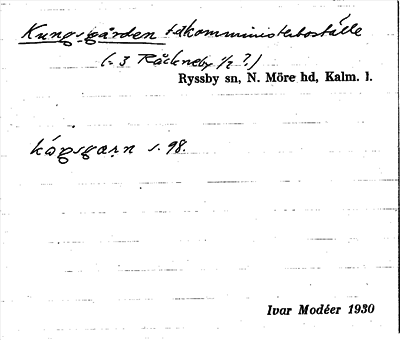 Kungsgården f.d. komministerboställe
(= 3 Råckneby 1/2 ?)
Ryssby sn, N. Möre hd, Kalm. l.
kóŋsgaṛn s. 98.
Ivar Modéer 1930